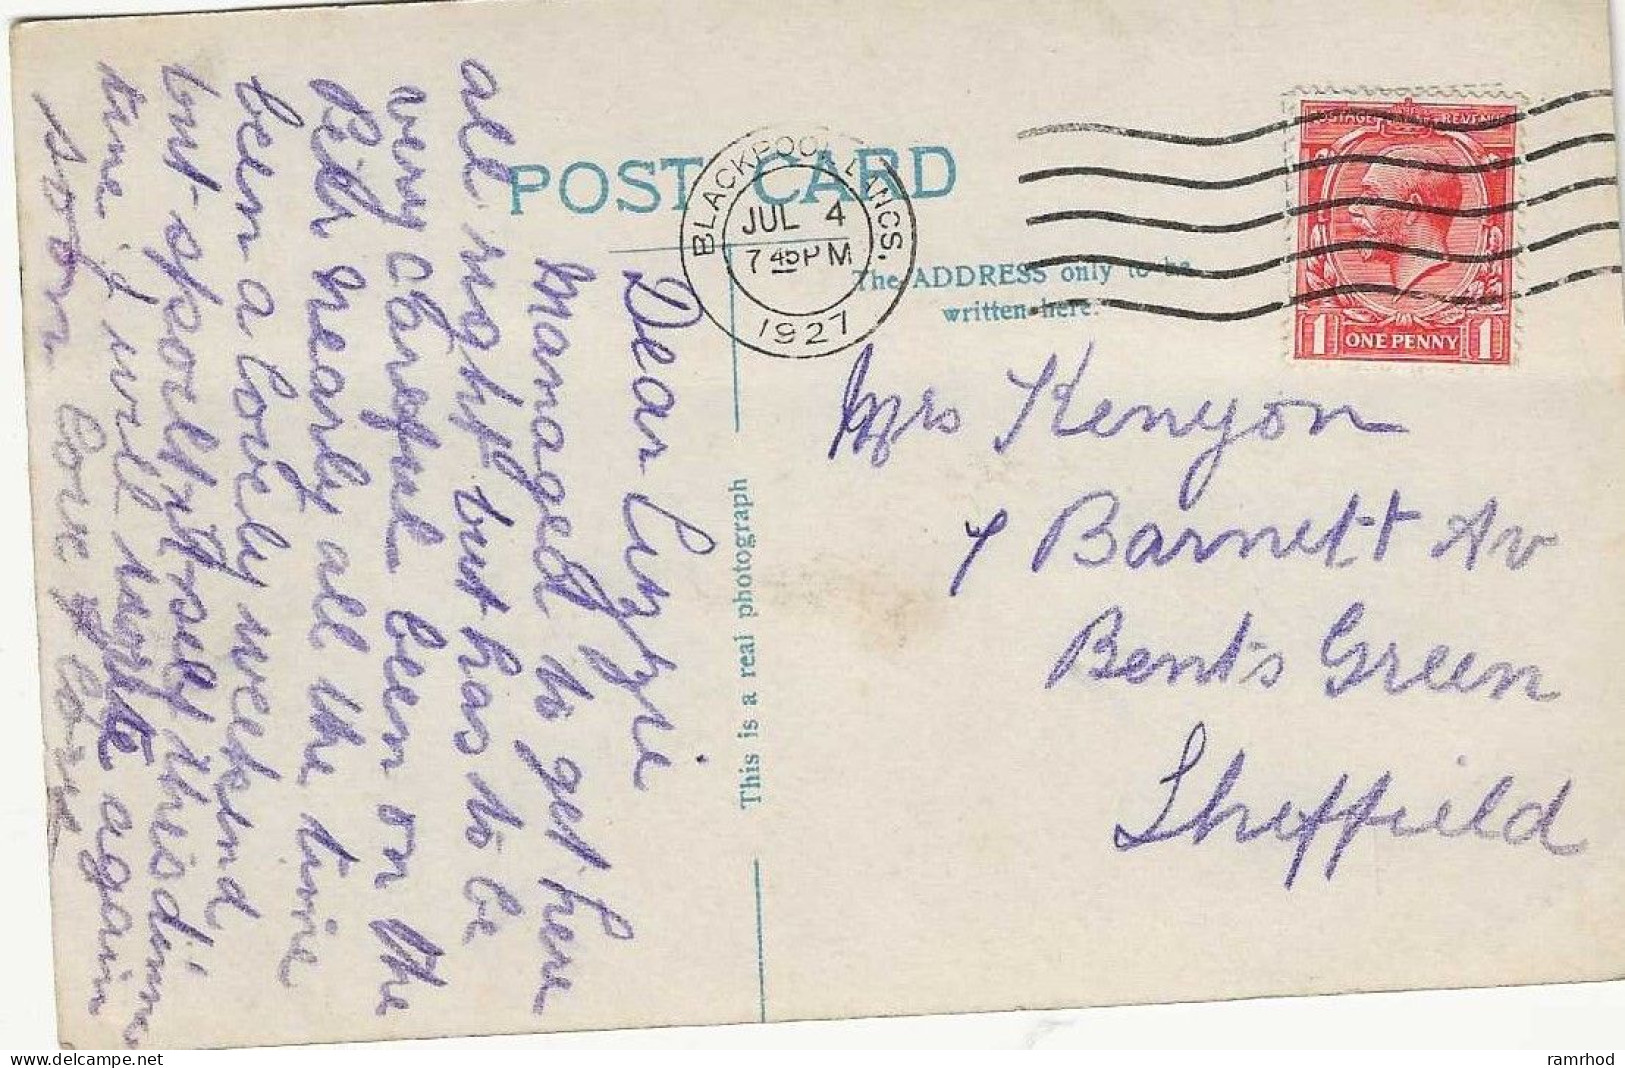 POST CARD
BLACKPOOL LANCS.
JUL 4
7 45 PM
1927
POSTAGE REVENUE
1 ONE PENNY 1
The ADDRESS only to be
written here.
This is a real photograph
Dear Lizzie
Managed to get here
all right but has to be
very careful been on the
Bed nearly all the time
been a lovely weekend
but spoilt itself this dinner
time I will write again
soon love
Mrs Kenyon
7 Barnett Av
Bents Green
Sheffield
ramrhod